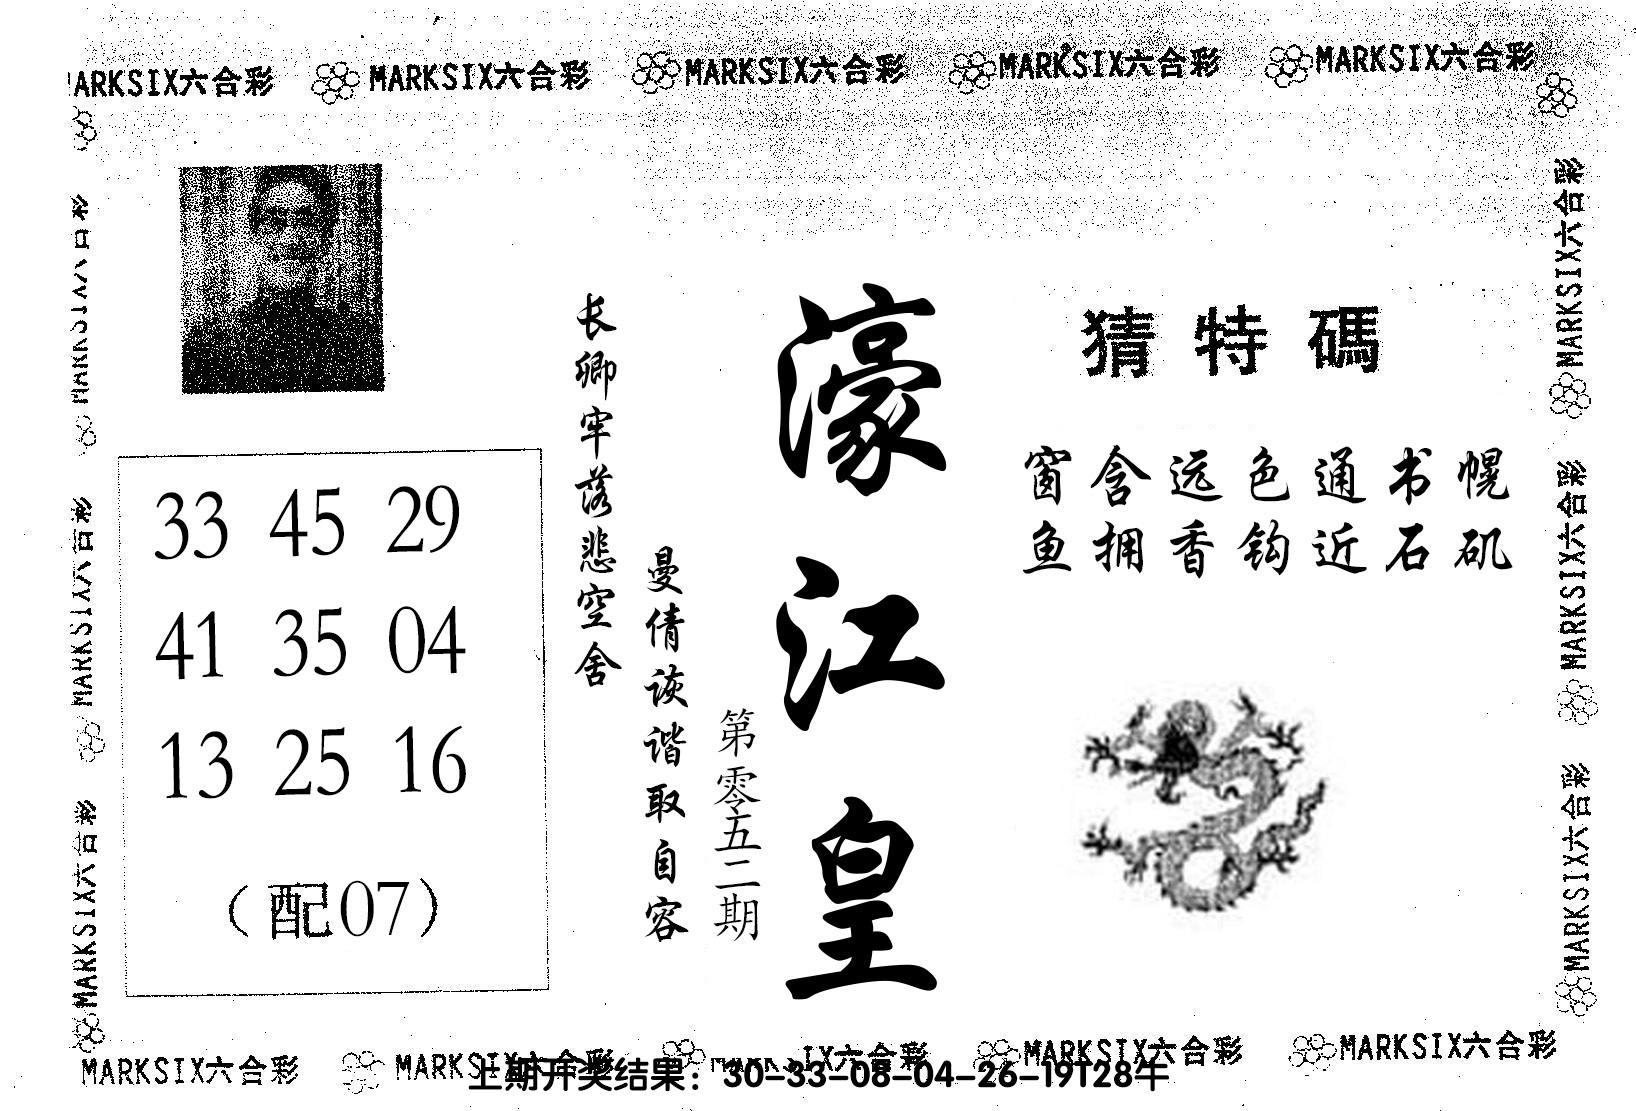 MARKSIX六合彩 MARKSIX六合彩 MARKSIX六合彩 MARKSIX六合彩 MARKSIX六合彩
MARKSIX六合彩
MARKSIX六合彩
MARKSIX六合彩
猜特碼
窗含远色通书幌
鱼拥香钩近石矶
濠江皇
第零五二期
曼倩诙谐取自容
长卿牢落悲空舍
33 45 29
41 35 04
13 25 16
（配07）
MARKSIX六合彩
MARKSIX六合彩
MARKSIX六合彩
MARKSIX六合彩 MARKSIX六合彩 MARKSIX六合彩 MARKSIX六合彩 MARKSIX六合彩
上期开奖结果：30-33-08-04-26-19T28牛